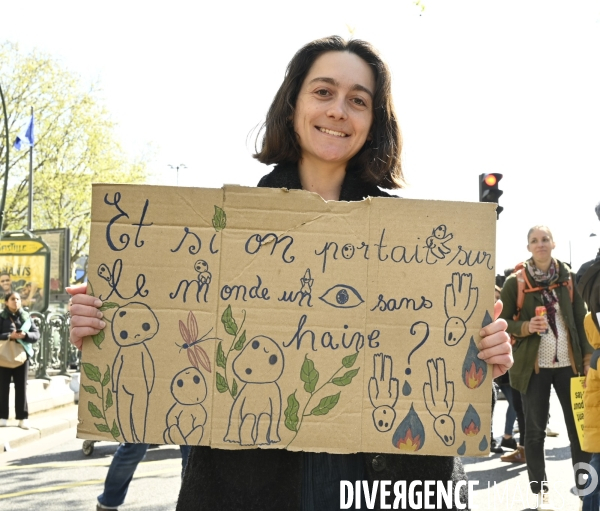 Et si on portait sur
le monde un 👁 sans
haine ?
DIVERGENCE IMAGES